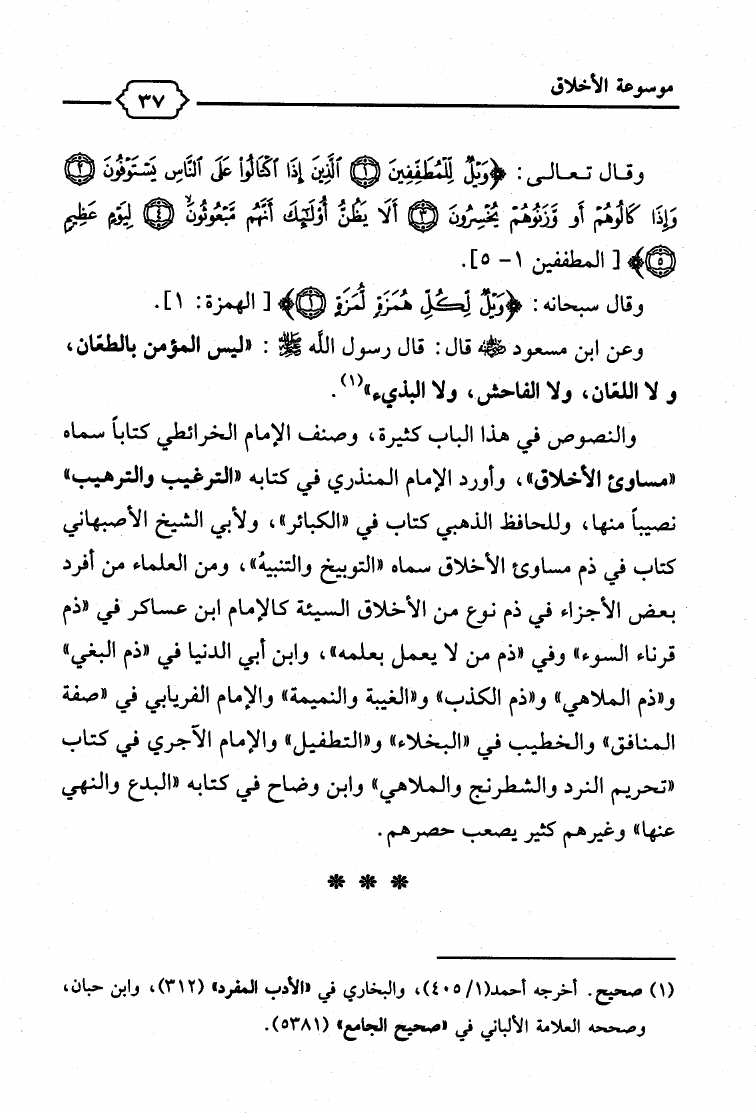 موسوعة الأخلاق
٣٧
وقـال تـعـالـى: ﴿وَيْلٌ لِّلْمُطَفِّفِينَ ۝١ ٱلَّذِينَ إِذَا ٱكْتَالُوا۟ عَلَى ٱلنَّاسِ يَسْتَوْفُونَ ۝٢
وَإِذَا كَالُوهُمْ أَو وَّزَنُوهُمْ يُخْسِرُونَ ۝٣ أَلَا يَظُنُّ أُو۟لَـٰٓئِكَ أَنَّهُم مَّبْعُوثُونَ ۝٤ لِيَوْمٍ عَظِيمٍ
۝٥﴾ [ المطففين ١- ٥].
وقال سبحانه: ﴿وَيْلٌ لِّكُلِّ هُمَزَةٍ لُّمَزَةٍ ۝١﴾ [ الهمزة: ١].
وعن ابن مسعود رضي الله عنه قال: قال رسول الله ﷺ : «ليس المؤمن بالطعّان،
و لا اللعّان، ولا الفاحش، ولا البذيء»(١).
والنصوص في هذا الباب كثيرة، وصنف الإمام الخرائطي كتاباً سماه
«مساوئ الأخلاق»، وأورد الإمام المنذري في كتابه «الترغيب والترهيب»
نصيباً منها، وللحافظ الذهبي كتاب في «الكبائر»، ولأبي الشيخ الأصبهاني
كتاب في ذم مساوئ الأخلاق سماه «التوبيخ والتنبيهُ»، ومن العلماء من أفرد
بعض الأجزاء في ذم نوع من الأخلاق السيئة كالإمام ابن عساكر في «ذم
قرناء السوء» وفي «ذم من لا يعمل بعلمه»، وابن أبي الدنيا في «ذم البغي»
و«ذم الملاهي» و«ذم الكذب» و«الغيبة والنميمة» والإمام الفريابي في «صفة
المنافق» والخطيب في «البخلاء» و«التطفيل» والإمام الآجري في كتاب
«تحريم النرد والشطرنج والملاهي» وابن وضاح في كتابه «البدع والنهي
عنها» وغيرهم كثير يصعب حصرهم.
* * *
(١) صحيح. أخرجه أحمد(٤٠٥/١)، والبخاري في «الأدب المفرد» (٣١٢)، وابن حبان،
وصححه العلامة الألباني في «صحيح الجامع» (٥٣٨١).